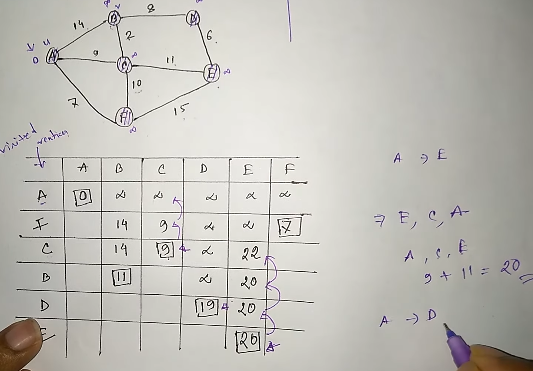 14
B
8
D
2
6
A
0
9
C
11
E
10
7
F
15
visited
vertex
A B C D E F
A 0 ∝ ∝ ∝ ∝ ∝
F 14 9 ∝ ∝ 7
C 14 9 ∝ 22
B 11 ∝ 20
D 19 20
E 20
A → E
⇒ E, C, A
A, C, E
9 + 11 = 20
A → D